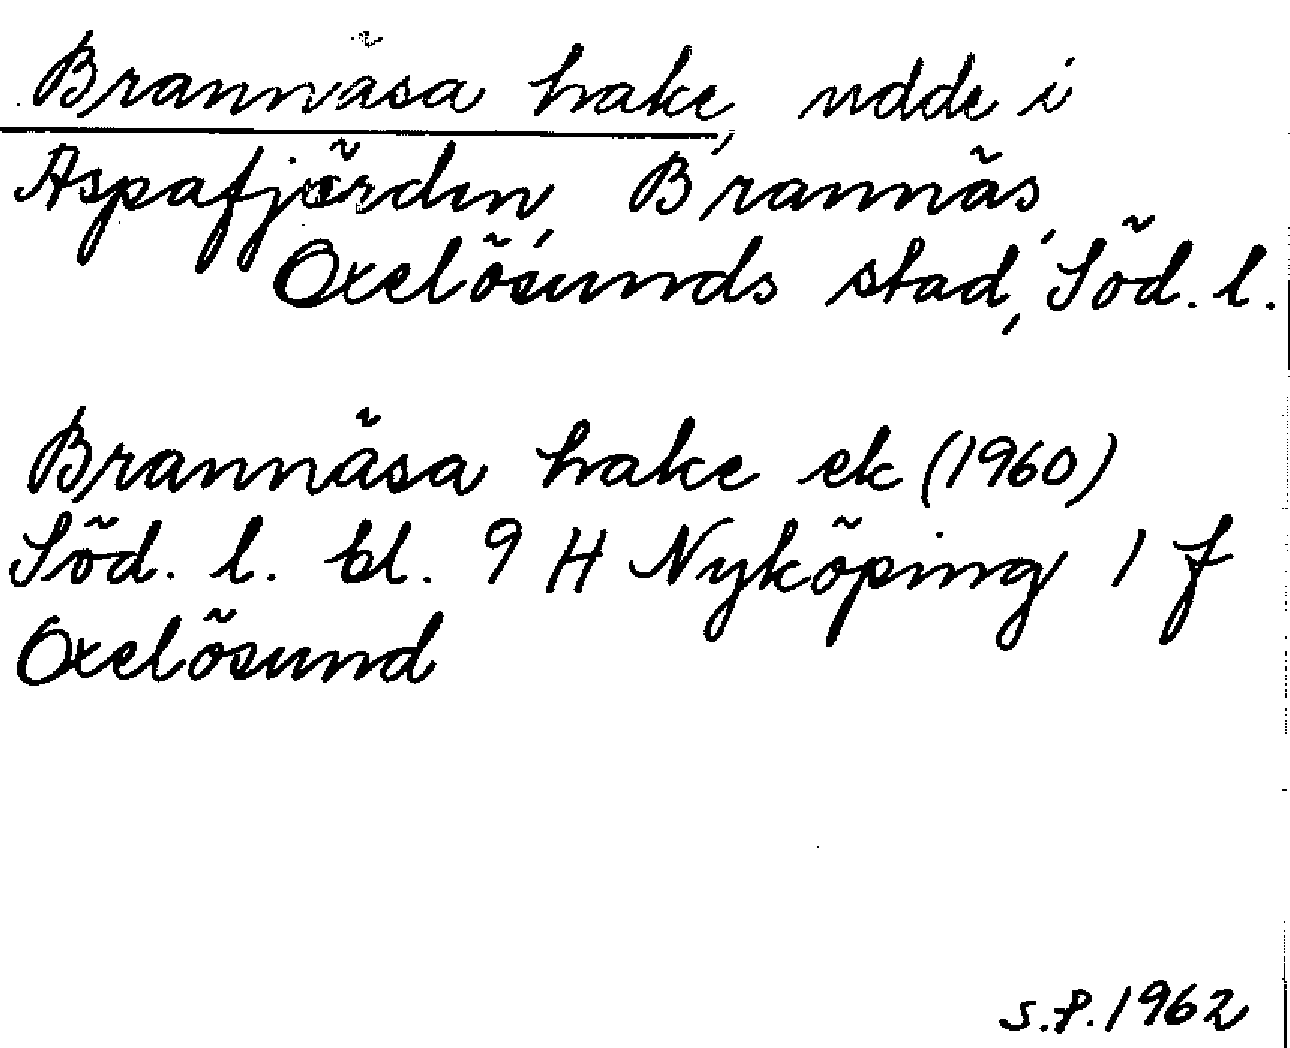 Brannäsa hake, udde i
Aspafjärden, Brannäs,
Oxelösunds stad, Söd. l.
Brannäsa hake ek (1960)
Söd. l. bl. 9 H Nyköping 1 f
Oxelösund
S.P. 1962